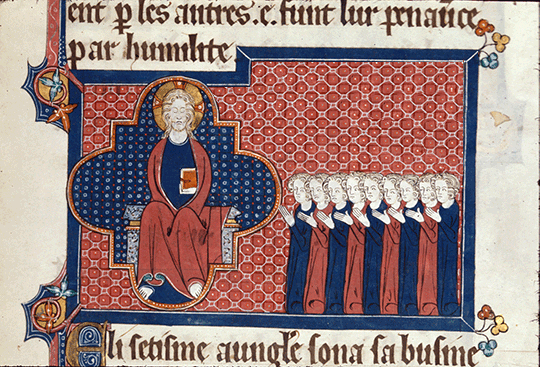 ent ꝑ les autres. e. funt lur penaūce
par humilite
Eli setisme aungle sona sa busine